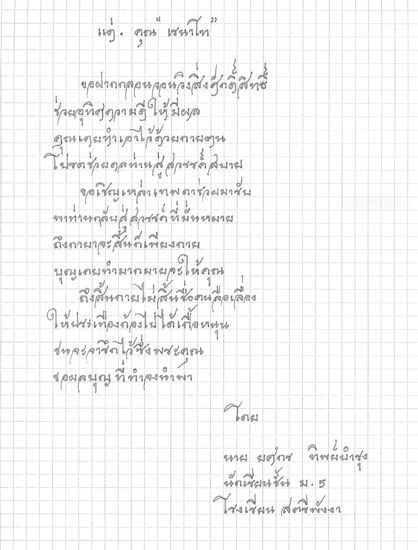 แด่. คุณ "เซนาโท"
ขอฝากกลอนวอนวิงสิ่งศักดิ์สิทธิ์
ช่วยอุทิศความดีให้มีผล
คุณเคยทำเอาไว้ด้วยกายตน
โปรดช่วยดลท่านสู่สวรรค์สบาย
ขอเชิญเหล่าเทพดาช่วยมารับ
พาท่านกลับสู่สวรรค์ที่มั่นหมาย
ถึงกายาจะสิ้นก็เพียงกาย
บุญเคยทำมากมายจะให้คุณ
ถึงสิ้นกายไม่สิ้นชื่อคนลือเลื่อง
ให้ประเทืองก้องไปได้เกื้อหนุน
ชนจะจารึกไว้ซึ่งพระคุณ
ขอผลบุญที่ทำจงนำพา
โดย
นาย ยศกร ทิพย์บำรุง
นักเรียนชั้น ม.5
โรงเรียน สตรีพังงา